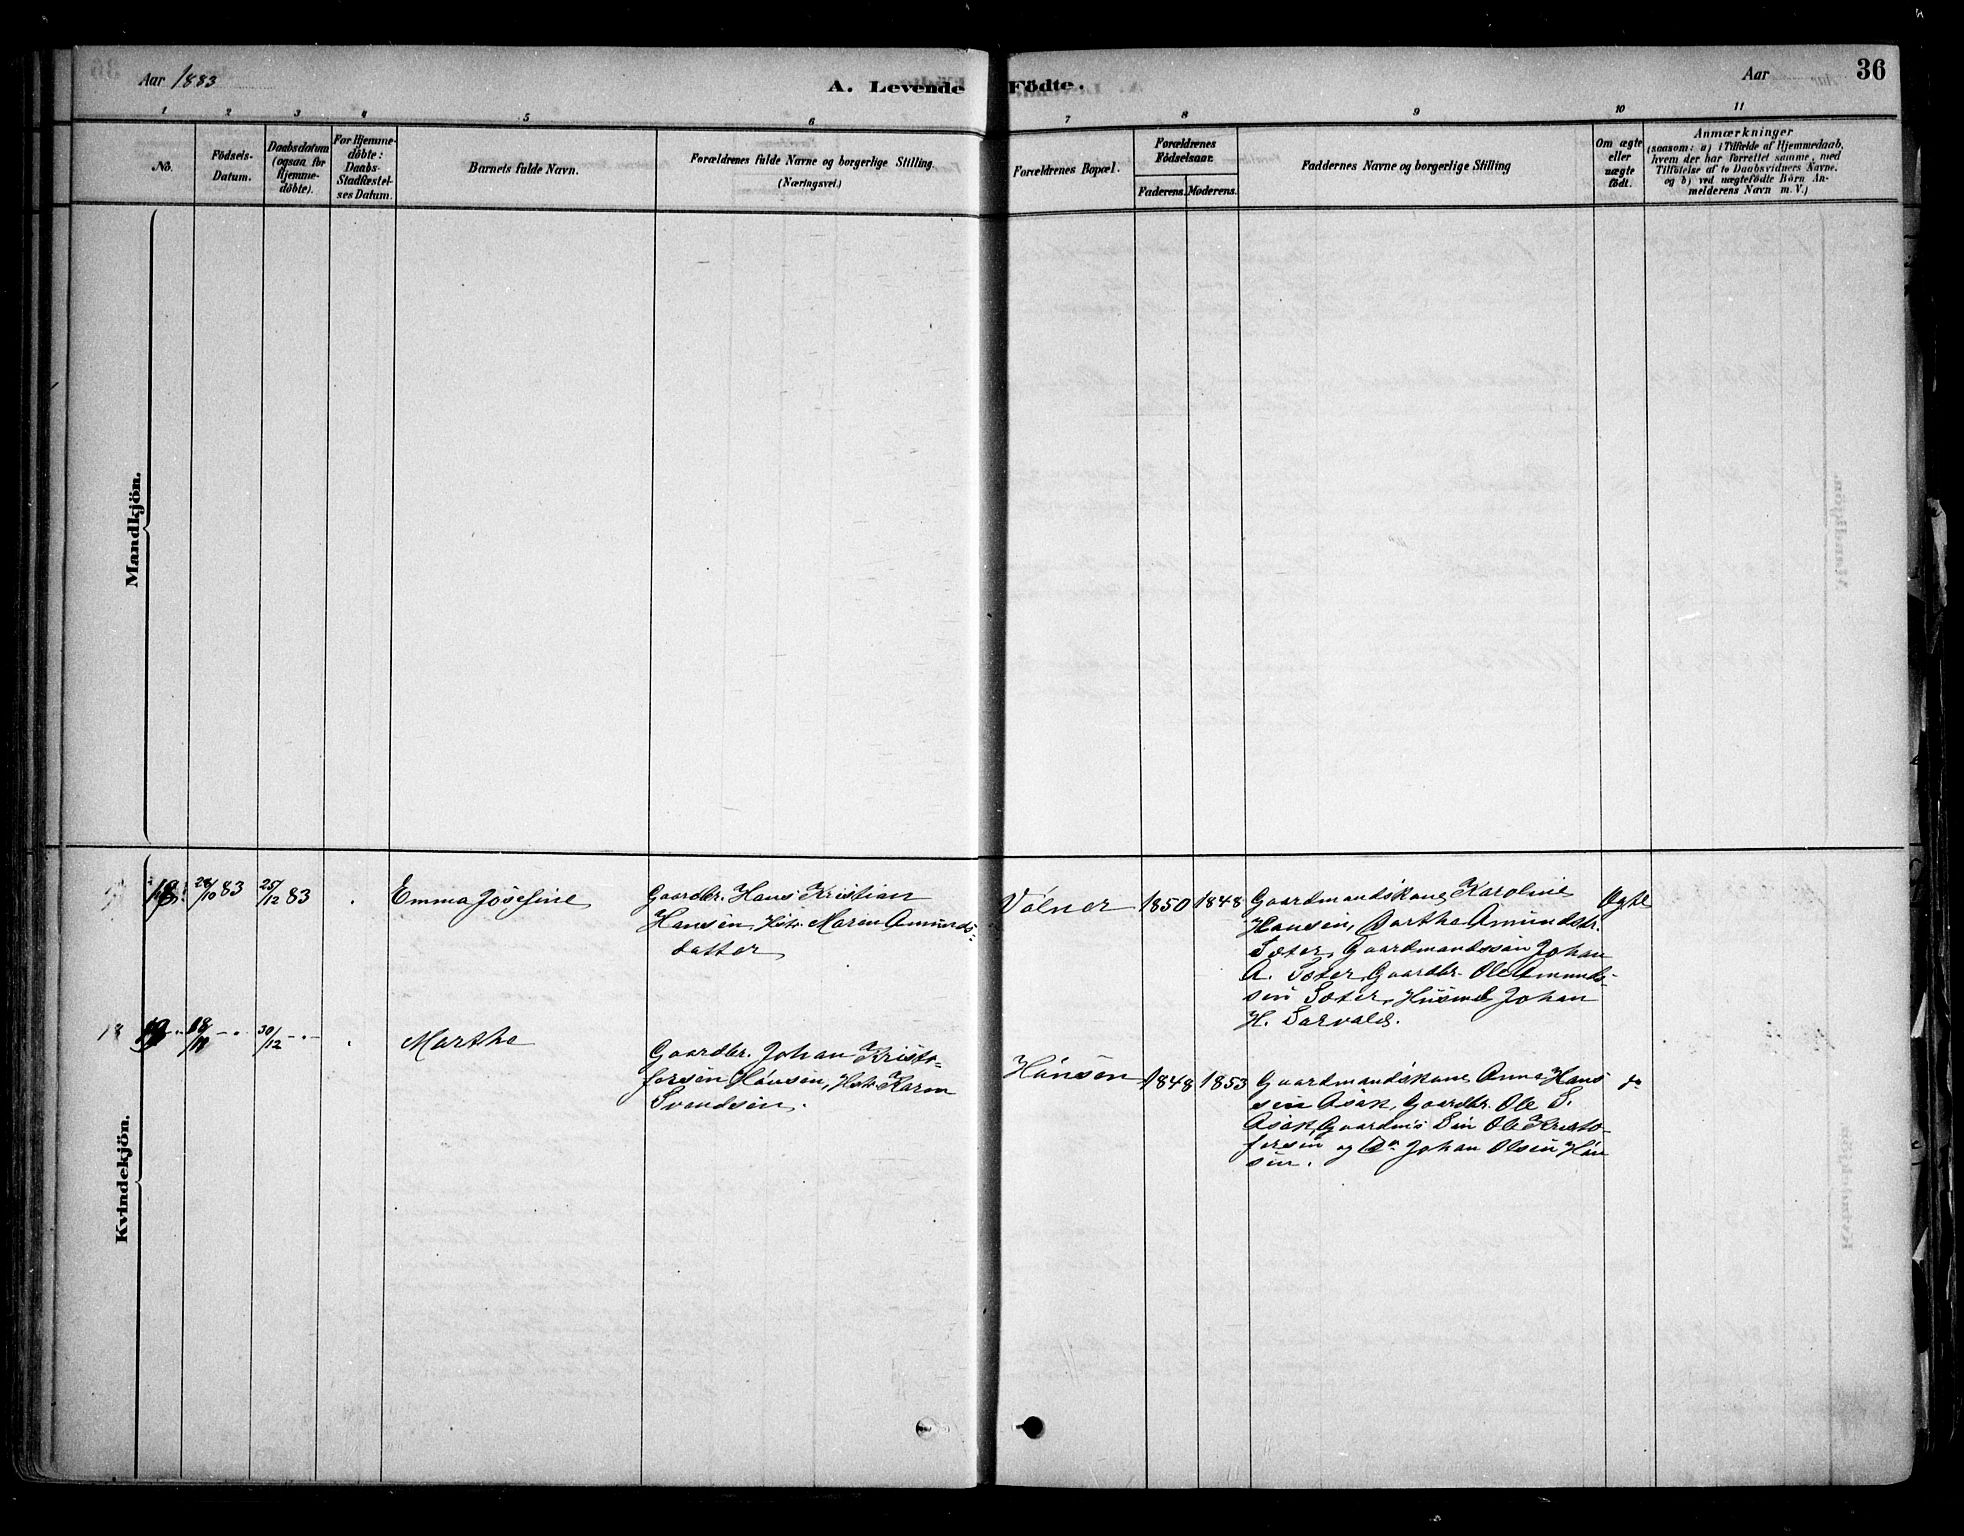 Aar 1883
A. Levende Födte.
Aar
36
1 2 3 4 5 6 7 8 9 10 11
No.
Födsels-
Datum.
Daabsdatum
(ogsaa for
Hjemme-
döbte).
For Hjemme-
döbte:
Daabs-
Stadfæstel-
ses Datum.
Barnets fulde Navn.
Forældrenes fulde Navne og borgerlige Stilling.
(Næringsvei.)
Forældrenes Bopæl.
Forældrenes
Födselsaar.
Faderens. Moderens.
Faddernes Navne og borgerlige Stilling
Om ægte
eller
uægte
födt.
Anmærkninger
(saasom: a) i Tilfælde af Hjemmedaab,
hvem der har forrettet samme, med
Tilföielse af to Daabsvidners Navne,
og b) ved uægtefödte Börn An-
melderens Navn m. V.)
Mandkjön.
Kvindekjön.
28/10 83 25/12 83
Emma Josefine
Gaardbr. Hans Kristian
Hansen, Hstr. Maren Amunds-
datter
Volner 1850 1848
Gaardmandskone Karoline
Hansen, Barthe Amundsdtr.
Sæter, Gaardmandssøn Johan
A. Sæter, Gaardbr. Ole Amund-
sen Sæter, Husmd Johan
H. Sarvald.
Ægte
18
30/12 -.-
Marthe
Gaardbr. Johan Kristo-
fersen Hønsen, Hstr. Karen
Svendsen.
Hønsen 1848 1853
Gaardmandskone Anne Han-
sen Asak, Gaardbr. Ole S.
Asak, Gaardm's Søn Ole Kristo-
fersen og Do Johan Olsen Høn-
sen.
do